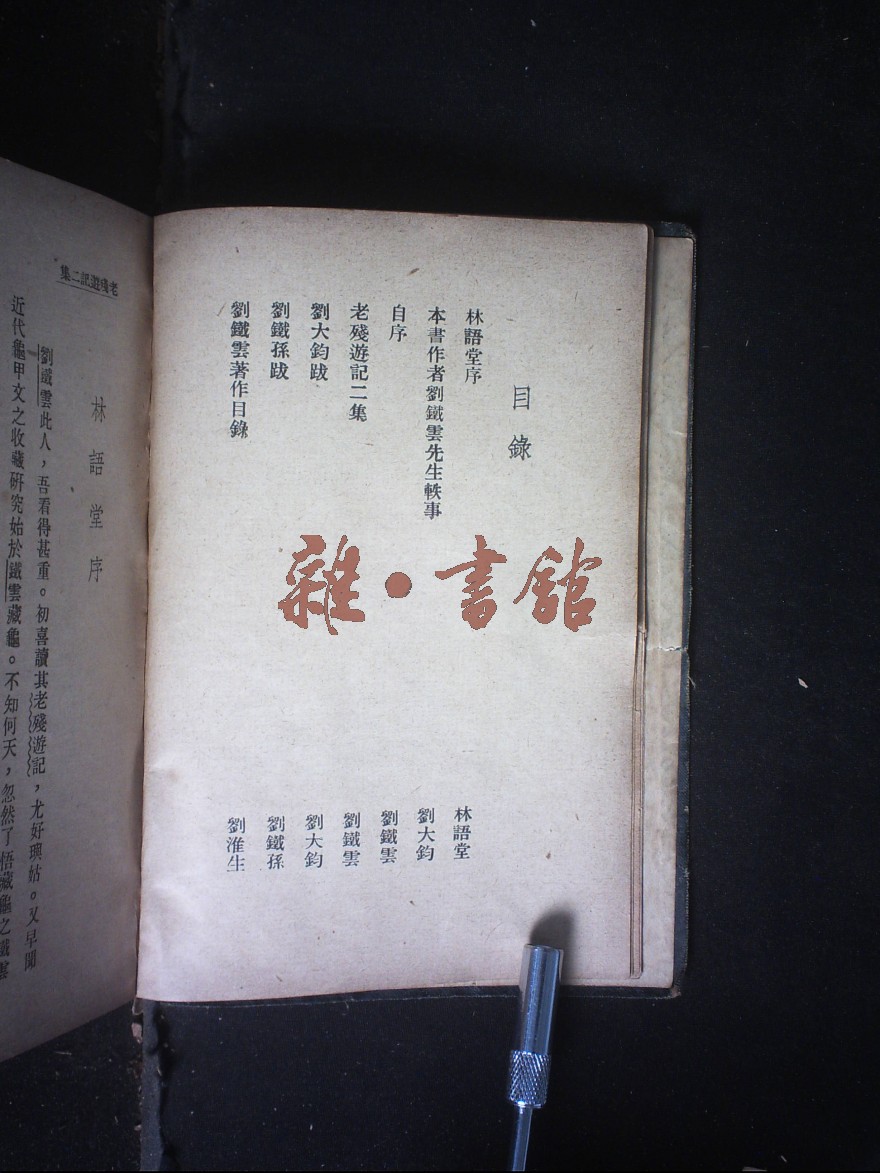 目錄
林語堂序 林語堂
本書作者劉鐵雲先生軼事 劉大鈞
自序 劉鐵雲
老殘遊記二集 劉鐵雲
劉大鈞跋 劉大鈞
劉鐵孫跋 劉鐵孫
劉鐵雲著作目錄 劉淮生
雜•書館
老殘遊記二集
林語堂序
劉鐵雲此人，吾看得甚重。初喜讀其老殘遊記，尤好璵姑。又早聞
近代龜甲文之收藏研究始於鐵雲藏龜。不知何天，忽然了悟藏龜之鐵雲